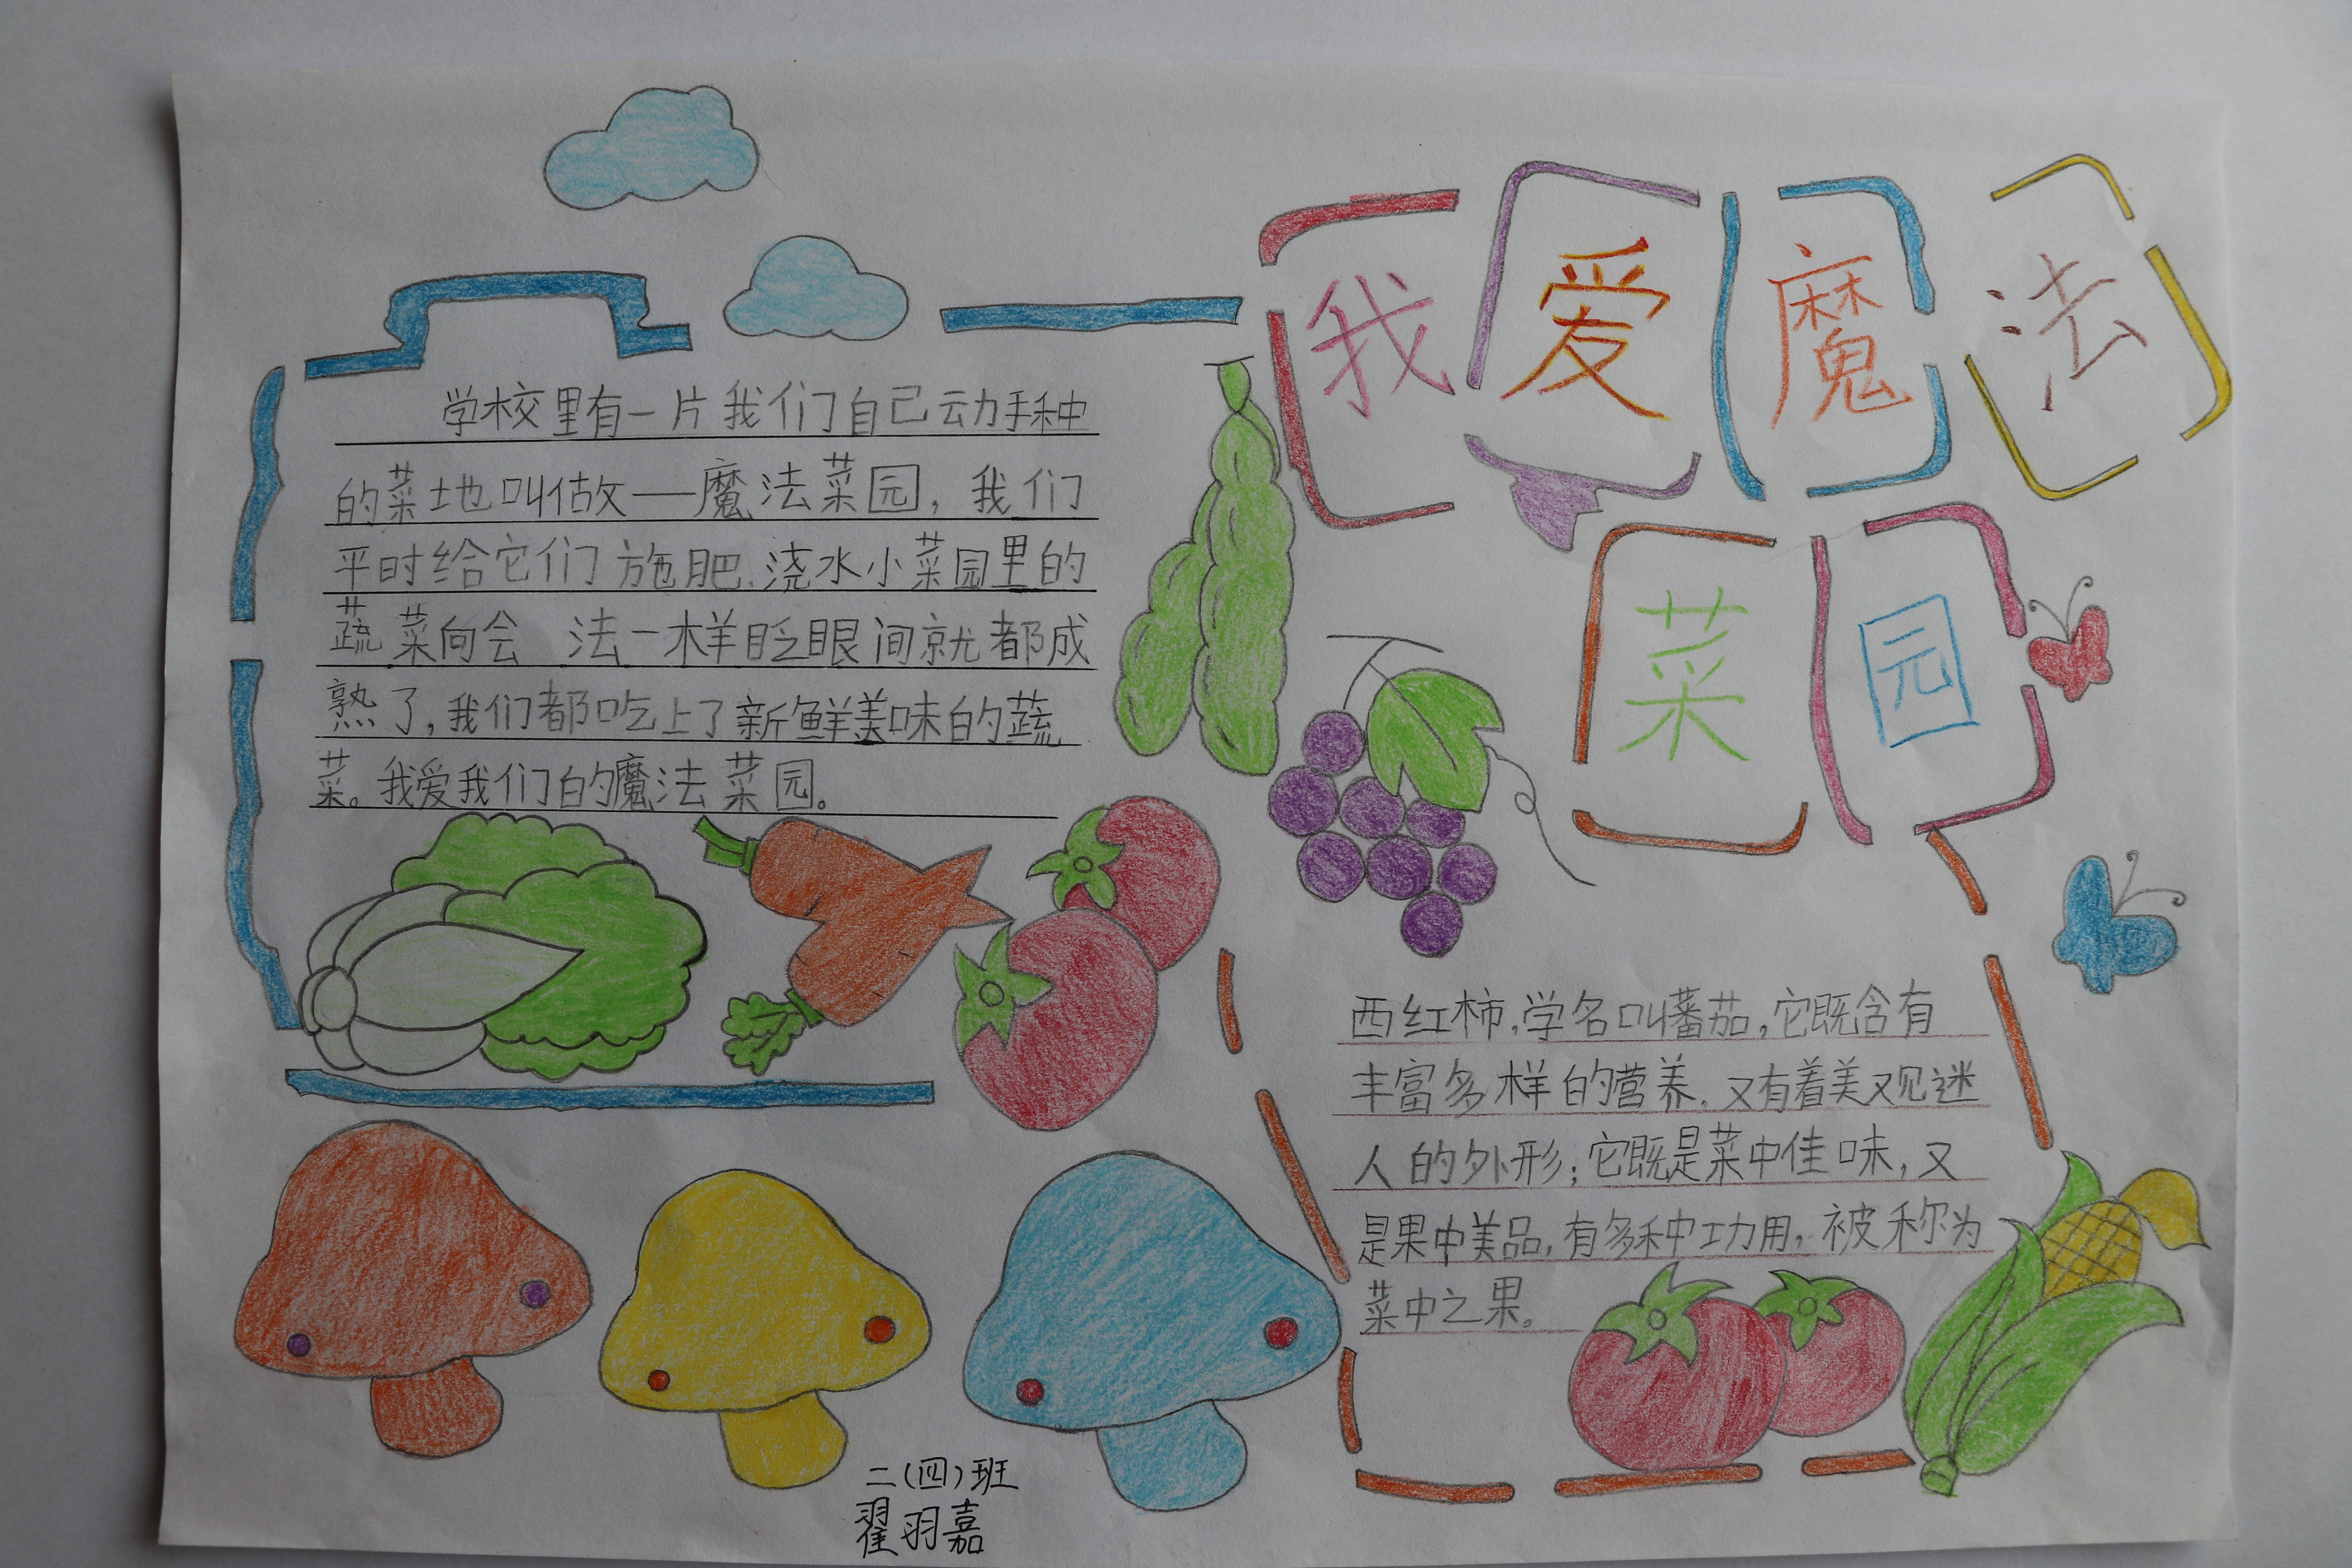 我爱魔法
菜园
学校里有一片我们自己动手种
的菜地叫做——魔法菜园，我们
平时给它们施肥、浇水小菜园里的
蔬菜向会 法一样眨眼间就都成
熟了，我们都吃上了新鲜美味的蔬
菜。我爱我们的魔法菜园。
西红柿，学名叫蕃茄，它既含有
丰富多样的营养，又有着美观迷
人的外形；它既是菜中佳味，又
是果中美品，有多种功用，被称为
菜中之果。
二（四）班
翟羽嘉